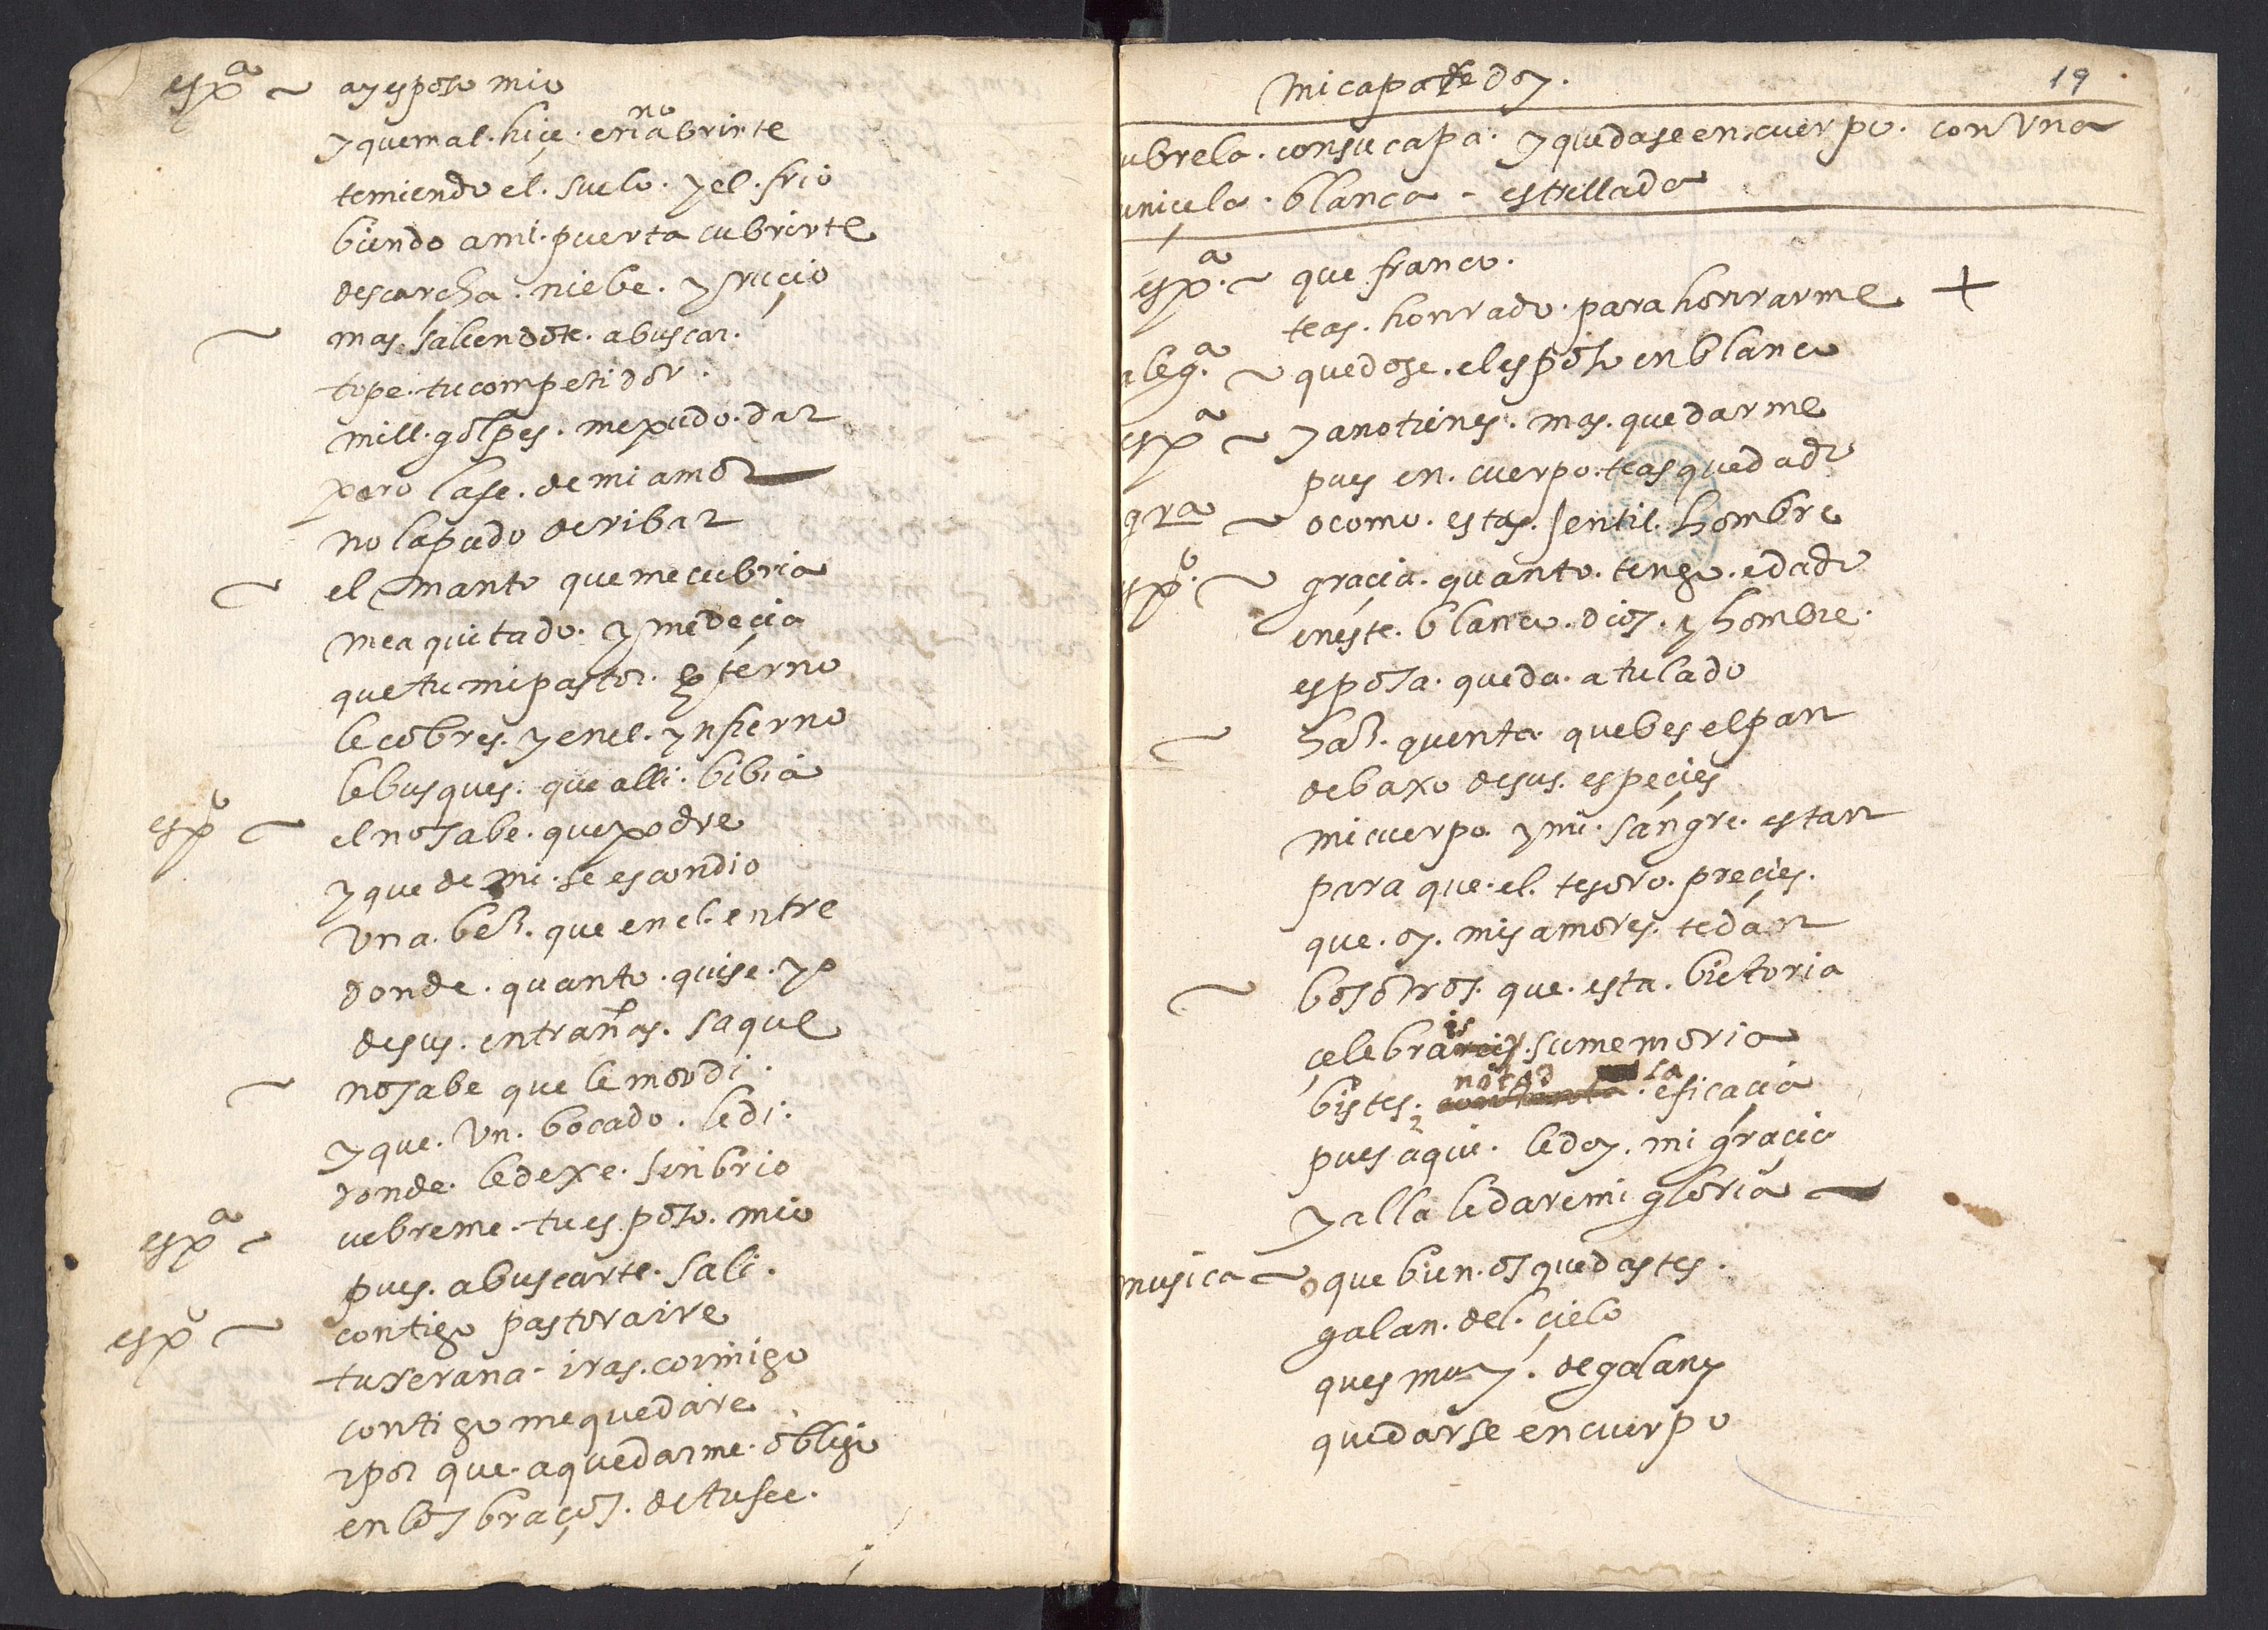 espa ~ ay esposo mio
y que mal hiçe en no abrirte
temiendo el suelo y el frio
biendo a mi puerta cubrirte
de escarcha niebe y rruçio
~ mas saliendote a buscar
tope tu competidor
mill golpes me pudo dar
pero la fe de mi amor
no la pudo deribar
~ el manto que me cubria
me a quitado y me deçia
que tu mi pastor eterno
le cobres y en el ynfierno
le busques que alli bibia
espo ~ el no sabe que podre
y que de mi se escondio
una bez que en el entre
donde quanto quise yo
de sus entrañas saque
~ no sabe que le mordi
y que un bocado le di
donde le dexe sin brio
espa ~ cubreme tu esposo mio
pues a buscarte sali
espo ~ contigo pastora ire
tu serana iras conmigo
contigo me quedare
por que a quedarme obligo
en los braços de tu fee
mi capa te doy
19
ubrela con su capa y quedase en cuerpo con una
unicela blanca estrellada
espa ~ que franco
te as honrado para honrrarme +
alega ~ quedose el esposo en blanco
espa ~ ya no tienes mas que darme
pues en cuerpo te as quedado
gra ~ o como estas jentil hombre
espo ~ gracia quanto tengo e dado
en este blanco dios y hombre
esposa queda a tu lado
~ haz quenta que bes el pan
debaxo de sus especies
mi cuerpo y mi sangre estan
para que el tesoro precies
que oy mis amores te dan
~ bosotros que esta bictoria
çelebrais su memoria
bistes notad la eficacia
pues aqui le doy mi graçia
y alla le dare mi gloria
musica ~ o que bien os quedastes
galan del çielo
ques muy de galanes
quedarse en cuerpo